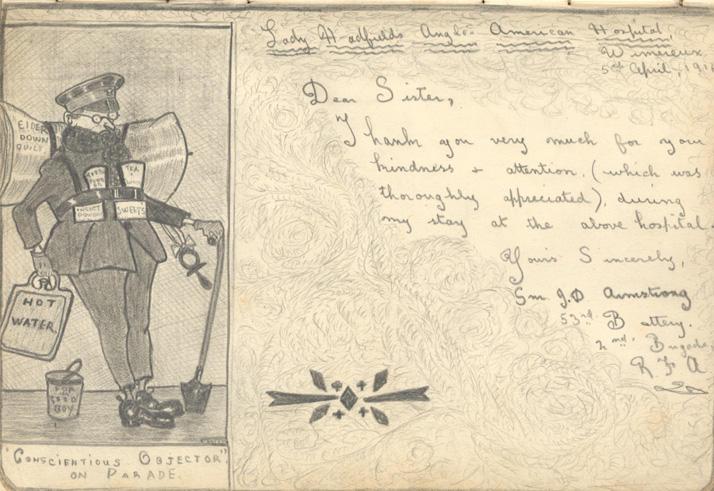 Lady Hadfields Anglo-American Hospital,
Wimereux.
5th April, 191
Dear Sister,
Thank you very much for your
kindness + attention, (which was
thoroughly appreciated), during
my stay at the above hospital.
Yours Sincerely,
Gnr J.D Armstrong
53rd Battery.
2nd Brigade,
R F A
EIDER
DOWN
QUILT
TEA
SWEETS
HOT
WATER
FOOD
BOY
"CONSCIENTIOUS OBJECTOR"
ON PARADE.